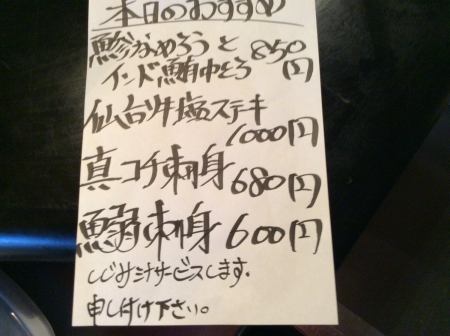 本日のおすすめ
鯵なめろうと 850円
インド鮪中とろ
仙台牛塩ステキ
1000円
真コチ刺身 680円
鰯刺身 600円
しじみ汁サービスします.
申し付け下さい。